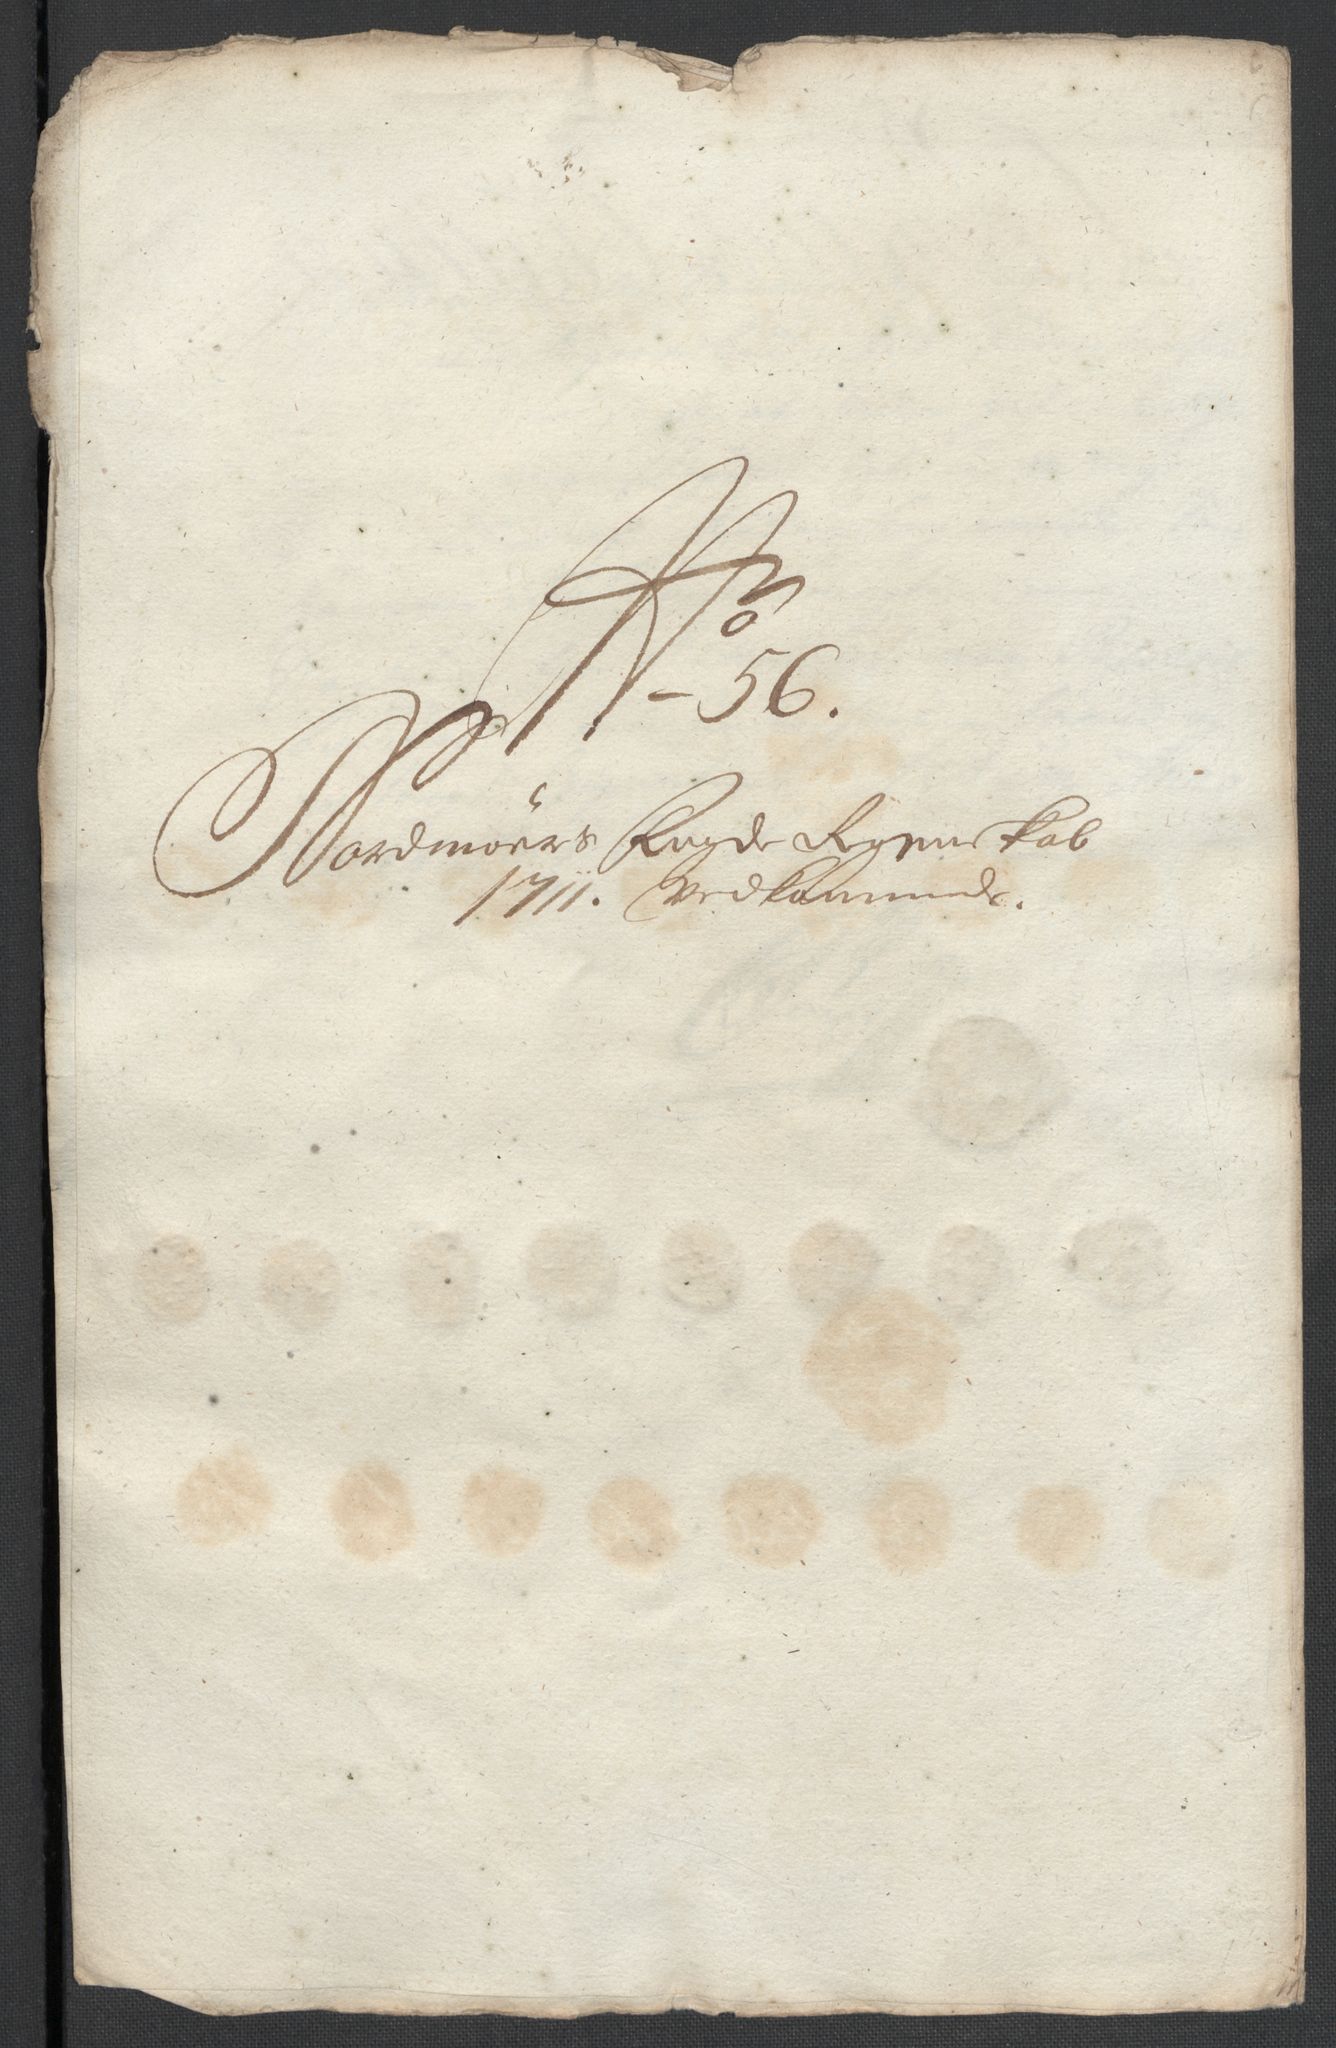 No
– 56.
Nordmøers Fogde Regenskab
1711. Vedkommende.